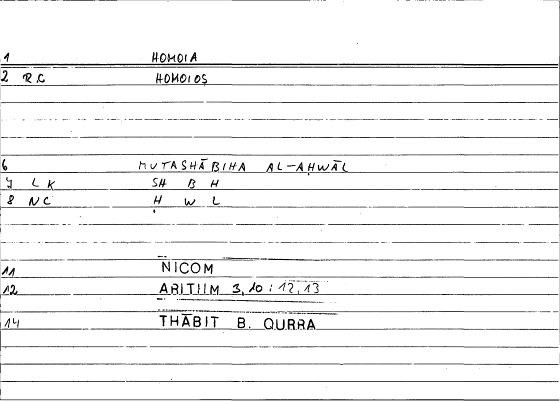 1 HOMOIA
2 RC HOMOIOS
6 MUTASHĀBIHA AL-AḤWĀL
7 LK SH B H
8 NC Ḥ W L
11 NICOM
12 ARITIIM 3,10 : 12,13
14 THĀBIT B. QURRA